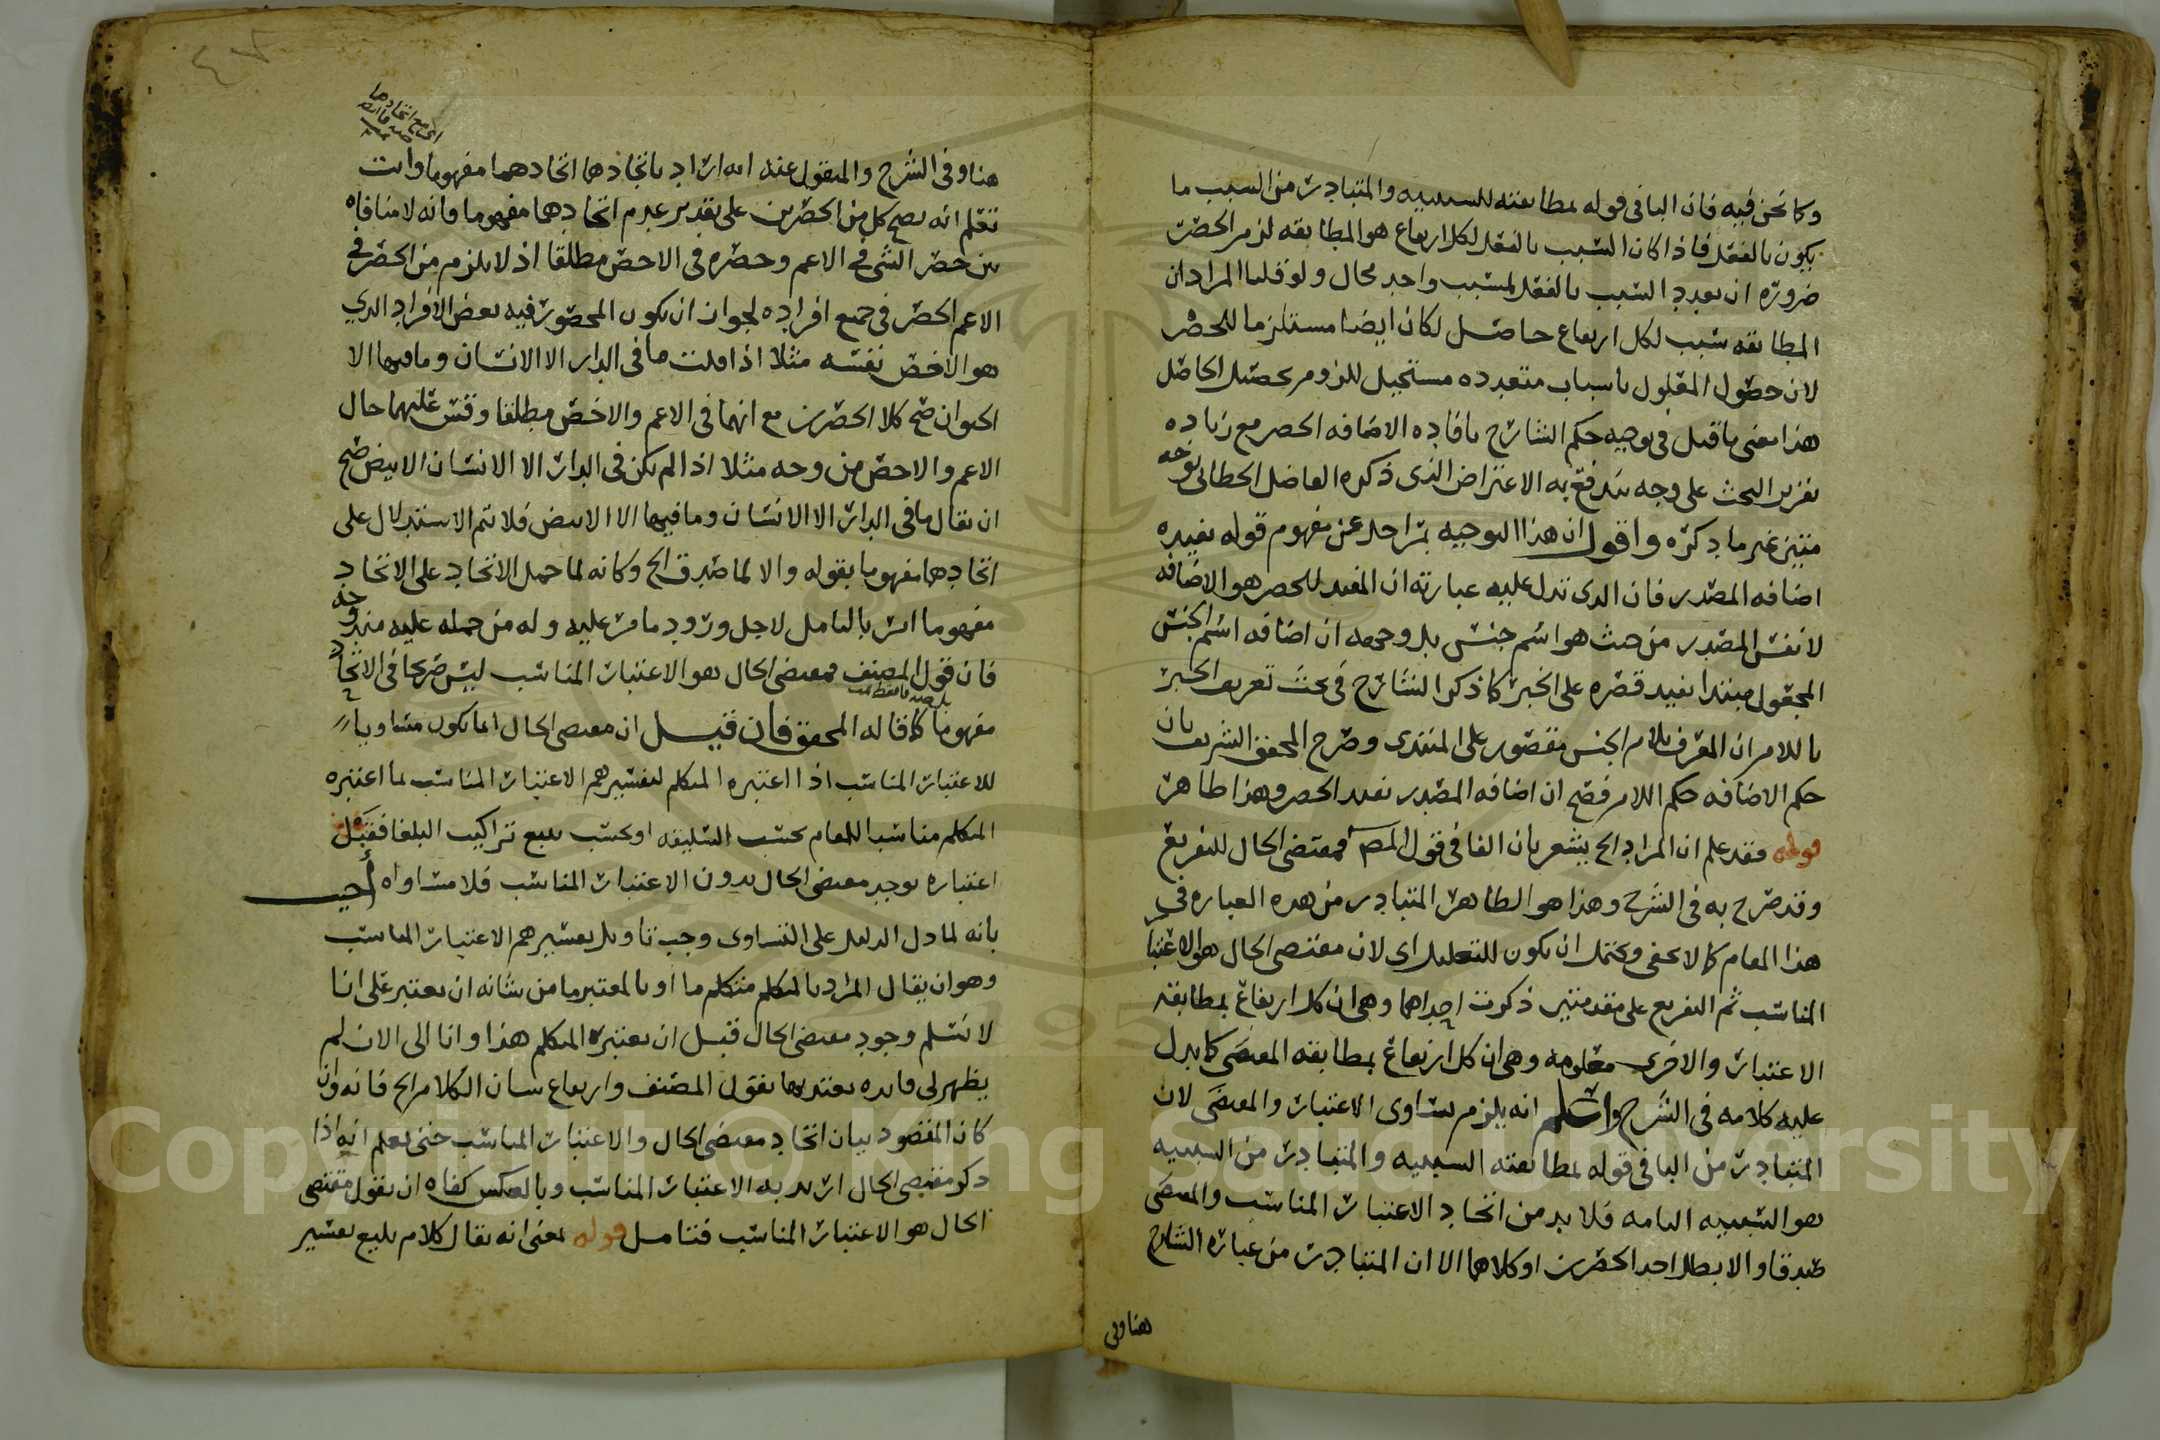 وكما نحن فيه فان البا في قوله لمطابقته للسببيه والمتبادر من السبب ما
يكون بالفعل فاذا كان السبب بالفعل لكل ارتفاع هو المطابقه لزم الحصر
ضرورة ان تعدد السبب بالفعل لمسبب واحد محال ولو قلنا المراد ان
المطابقه سبب لكل ارتفاع حاصل لكان ايضا مستلزما للحصر
لان حصول المعلول باسباب متعدده مستحيل للزوم تحصيل الحاصل
هذا معنى ما قيل في توجيه حكم الشارح بافاده الاضافه الحصر مع زياده
تقرير البحث على وجه يندفع به الاعتراض الذى ذكره الفاضل الخطائى بوجه
متين غير ما ذكره واقول ان هذا التوجيه بمراحل عن مفهوم قوله تفيده
اضافه المصدر فان الذى تدل عليه عبارته ان المفيد للحصر هو الاضافه
لا نفس المصدر من حيث هو اسم جنس بل وجهه ان اضافه اسم الجنس
المجعول مبتدا تفيد قصره على الخبر كما ذكر الشارح في بحث تعريف الخبر
باللام ان المعرف بلام الجنس مقصور على المبتدى وصرح المحقق الشريف بان
حكم الاضافه حكم اللام فصح ان اضافه المصدر تفيد الحصر وهذا ظاهر
قوله فقد علم ان المراد الخ يشعر بان الفا في قول المص فمقتضى الحال للتفريع
وقد صرح به في الشرح وهذا هو الظاهر المتبادر من هذه العباره في
هذا المقام كما لا يخفى ويحتمل ان يكون للتعليل اى لان مقتضى الحال هو الاعتبار
المناسب ثم التفريع على مقدمتين ذكرت احداهما وهى ان كل ارتفاع بمطابقة
الاعتبار والاخرى معلومه وهى ان كل ارتفاع بمطابقه المقتضى كما يدل
عليه كلامه في الشرح واعلم انه يلزم تساوى الاعتبار والمقتضى لان
المتبادر من البا في قوله لمطابقته السببيه والمتبادر من السببيه
هو السببيه التامه فلا بد من اتحاد الاعتبار المناسب والمقتضى
صدقا والا بطل احد الحصرين او كلاهما الا ان المتبادر من عبارة الشارح
هنا وفى
هنا وفى الشرح والمنقول عنه انه اراد باتحادهما اتحادهما مفهوما وانت
تعلم انه يصح كل من الحصرين على تقدير عدم اتحادهما مفهوما وانه لا منافاه
بين حصر الشى فى الاعم وحصره فى الاخص مطلقا اذ لا يلزم من الحصر فى
الاعم الحصر فى جميع افراده لجواز ان يكون المحصور فيه بعض الافراد الذي
هو الاخص نفسه مثلا اذا قلت ما فى الدار الا الانسان وما فيها الا
الحيوان صح كلا الحصرين مع انهما فى الاعم والاخص مطلقا وقس عليهما حال
الاعم والاخص من وجه مثلا اذا لم يكن فى الدار الا الانسان الابيض صح
ان يقال ما فى الدار الا الانسان وما فيها الا الابيض فلا يتم الاستدلال على
اتحادهما مفهوما بقوله والا لما صدق الخ وكانه لما حمل الاتحاد على الاتحاد
مفهوما اشر بالتامل لاجل ورود ما مر عليه وله من حمله عليه مندوحه
فان قول المصنف فمقتضى الحال هو الاعتبار المناسب ليس صريحا فى الاتحاد
مفهوما كما قاله المحقق فان قيل ان مقتضى الحال انما يكون مساويا
للاعتبار المناسب اذا اعتبره المتكلم لتفسيرهم الاعتبار المناسب بما اعتبره
المتكلم مناسبا للمقام بحسب السليقه او بحسب تتبع تراكيب البلغا فقبل
اعتباره يوجد مقتضى الحال بدون الاعتبار المناسب فلا مساواه أجيب
بانه لما دل الدليل على التساوى وجب تاويل تفسيرهم الاعتبار المناسب
وهو ان يقال المراد بالمتكلم متكلم ما او بالمعتبر ما من شانه ان يعتبر على انا
لا نسلم وجود مقتضى الحال قبل ان يعتبره المتكلم هذا وانا الى الان لم
يظهر لى فايده يعتد بها بقول المصنف وارتفاع شان الكلام الخ فانه وان
كان المقصود بيان اتحاد مقتضى الحال والاعتبار المناسب حتى يعلم انه اذا
ذكر مقتضى الحال اريد به الاعتبار المناسب وبالعكس كفاه ان يقول مقتضى
الحال هو الاعتبار المناسب فتامل قوله بمعنى انه يقال كلام بليغ تفسير